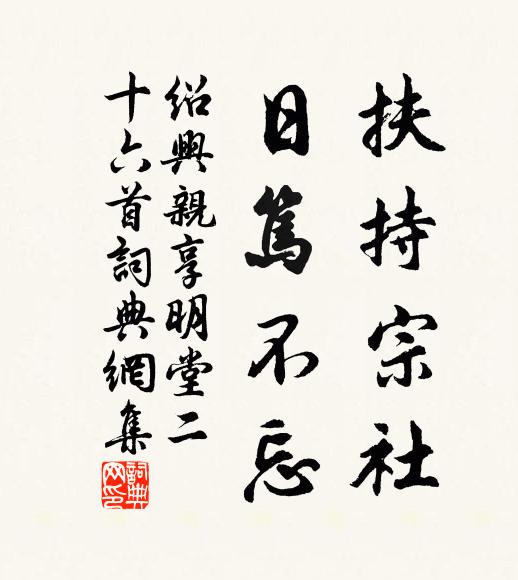 扶持宗社
日篤不忘
紹興親享明堂二
十六首詞典網集
詞典网印